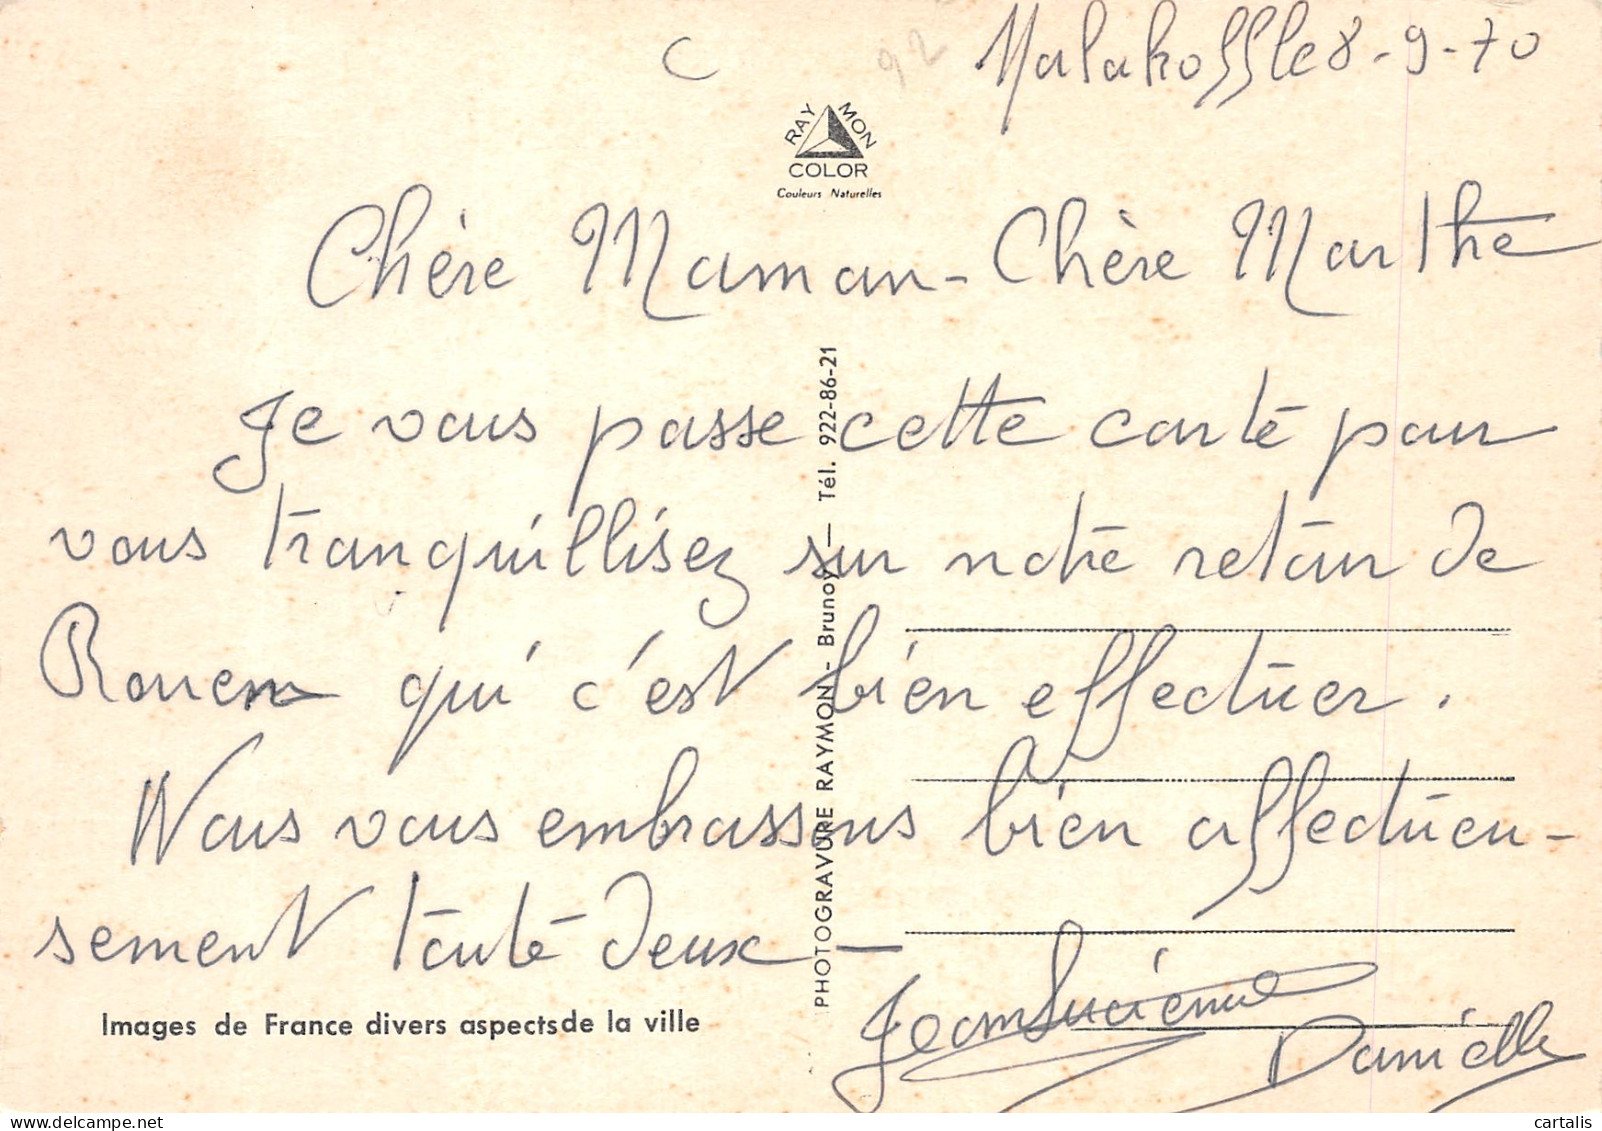 C
92
Malakoff le 8-9-70
RAYMON
COLOR
Couleurs Naturelles
Chère Maman - Chère Marthe
Je vous passe cette carte pour
vous tranquillisez sur notre retour de
Rouen qui c'est bien effectuer.
Nous vous embrassons bien affectueu-
sement toute deux -
Jean Lucienne
Danielle
Images de France divers aspects de la ville
PHOTOGRAVURE RAYMON - Brunoy - Tél. 922-86-21
cartalis